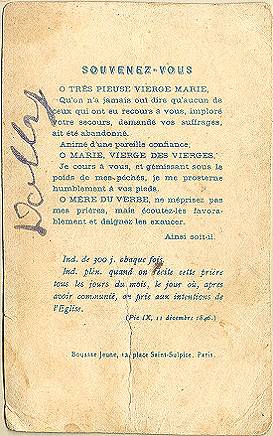 Dolly
SOUVENEZ-VOUS
O TRÈS PIEUSE VIERGE MARIE,
Qu'on n'a jamais ouï dire qu'aucun de
ceux qui ont eu recours à vous, imploré
votre secours, demandé vos suffrages,
ait été abandonné.
Animé d'une pareille confiance,
O MARIE, VIERGE DES VIERGES,
Je cours à vous, et gémissant sous le
poids de mes péchés, je me prosterne
humblement à vos pieds.
O MÈRE DU VERBE, ne méprisez pas
mes prières, mais écoutez-les favora-
blement et daignez les exaucer.
Ainsi soit-il.
Ind. de 300 j. chaque fois.
Ind. plén. quand on récite cette prière
tous les jours du mois, le jour où, après
avoir communié, on prie aux intentions de
l'Eglise.
(Pie IX, 11 décembre 1846.)
Bouasse Jeune, 12, place Saint-Sulpice, Paris.